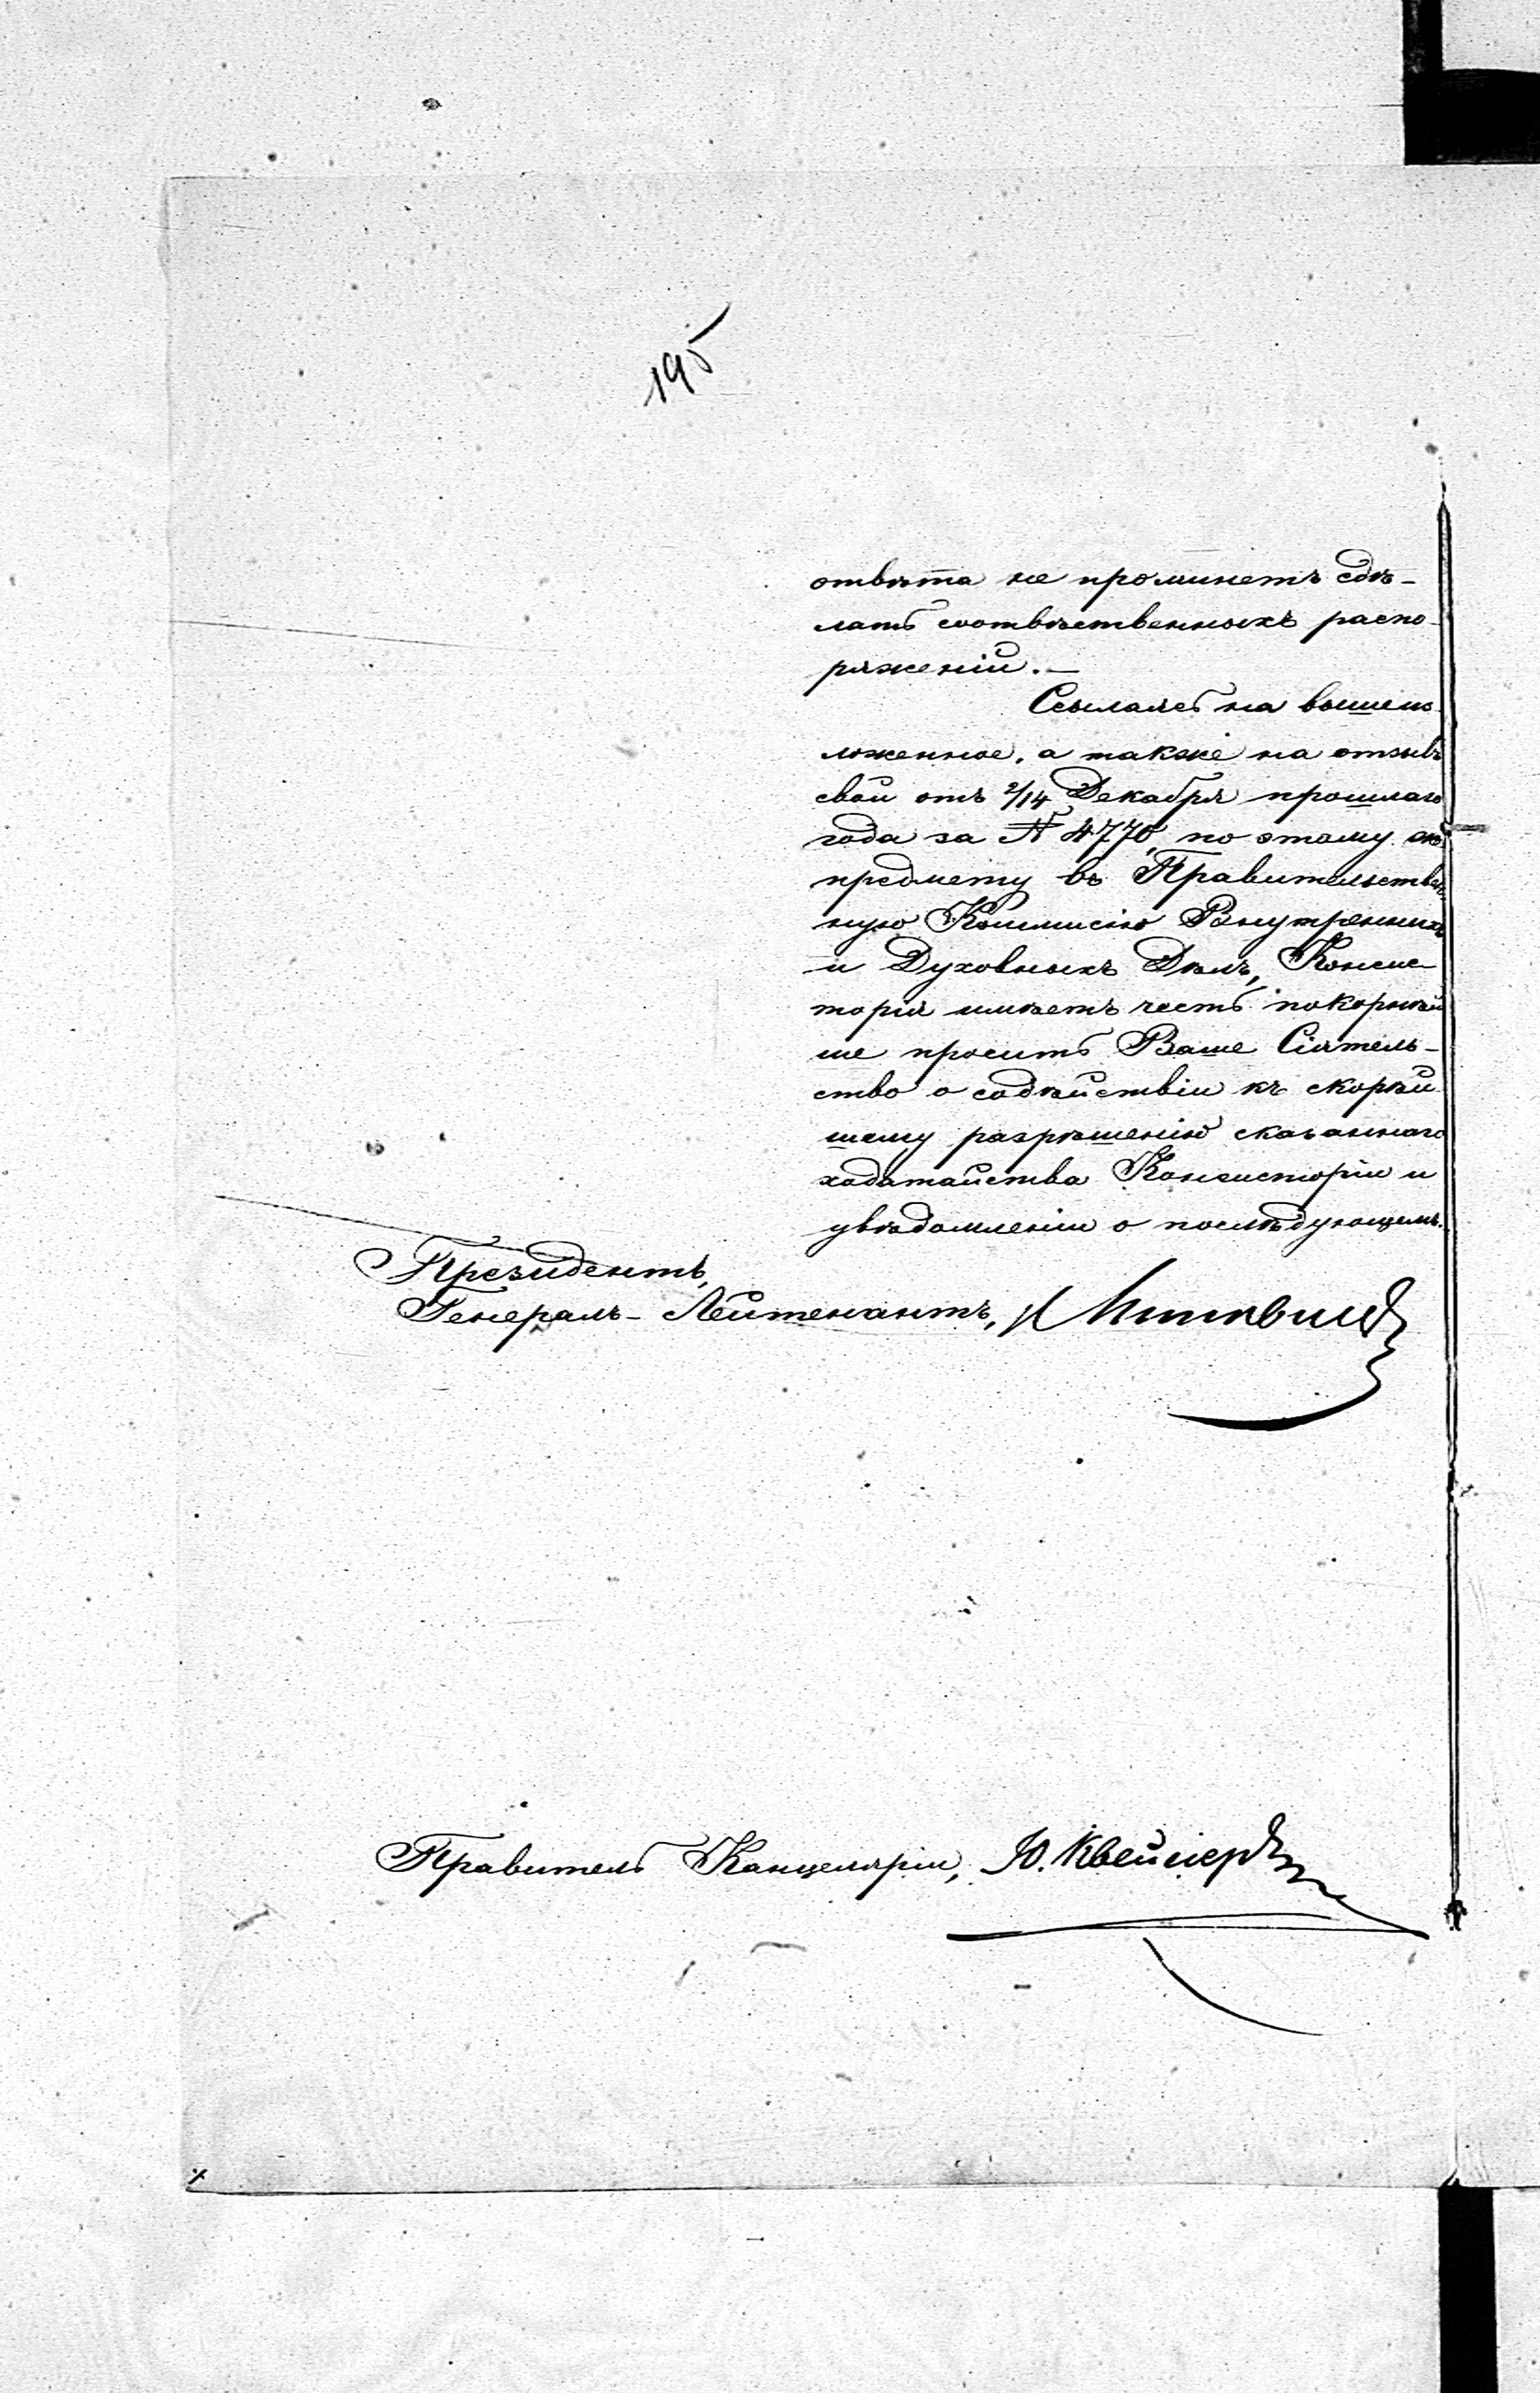 195
отвѣта не проминетъ сдѣ-
лать соотвѣтственныхъ распо-
ряженій.—
Ссылаясь на вышеиз-
ложенное, а также на отзывъ
свой отъ 2/14 Декабря прошлаго
года за № 4770, по этому же
предмету въ Правительствен-
ную Коммисію Внутреннихъ
и Духовныхъ Дѣлъ, Консис-
торія имѣетъ честь покорнѣй
ше просить Ваше Сіятель-
ство о содѣйствіи къ скорѣй
шему разрѣшенію сказаннаго
ходатайства Консисторіи и
увѣдомленіи о послѣдующемъ.
Президентъ,
Генералъ-Лейтенантъ,
Правитель Канцеляріи, Ю.